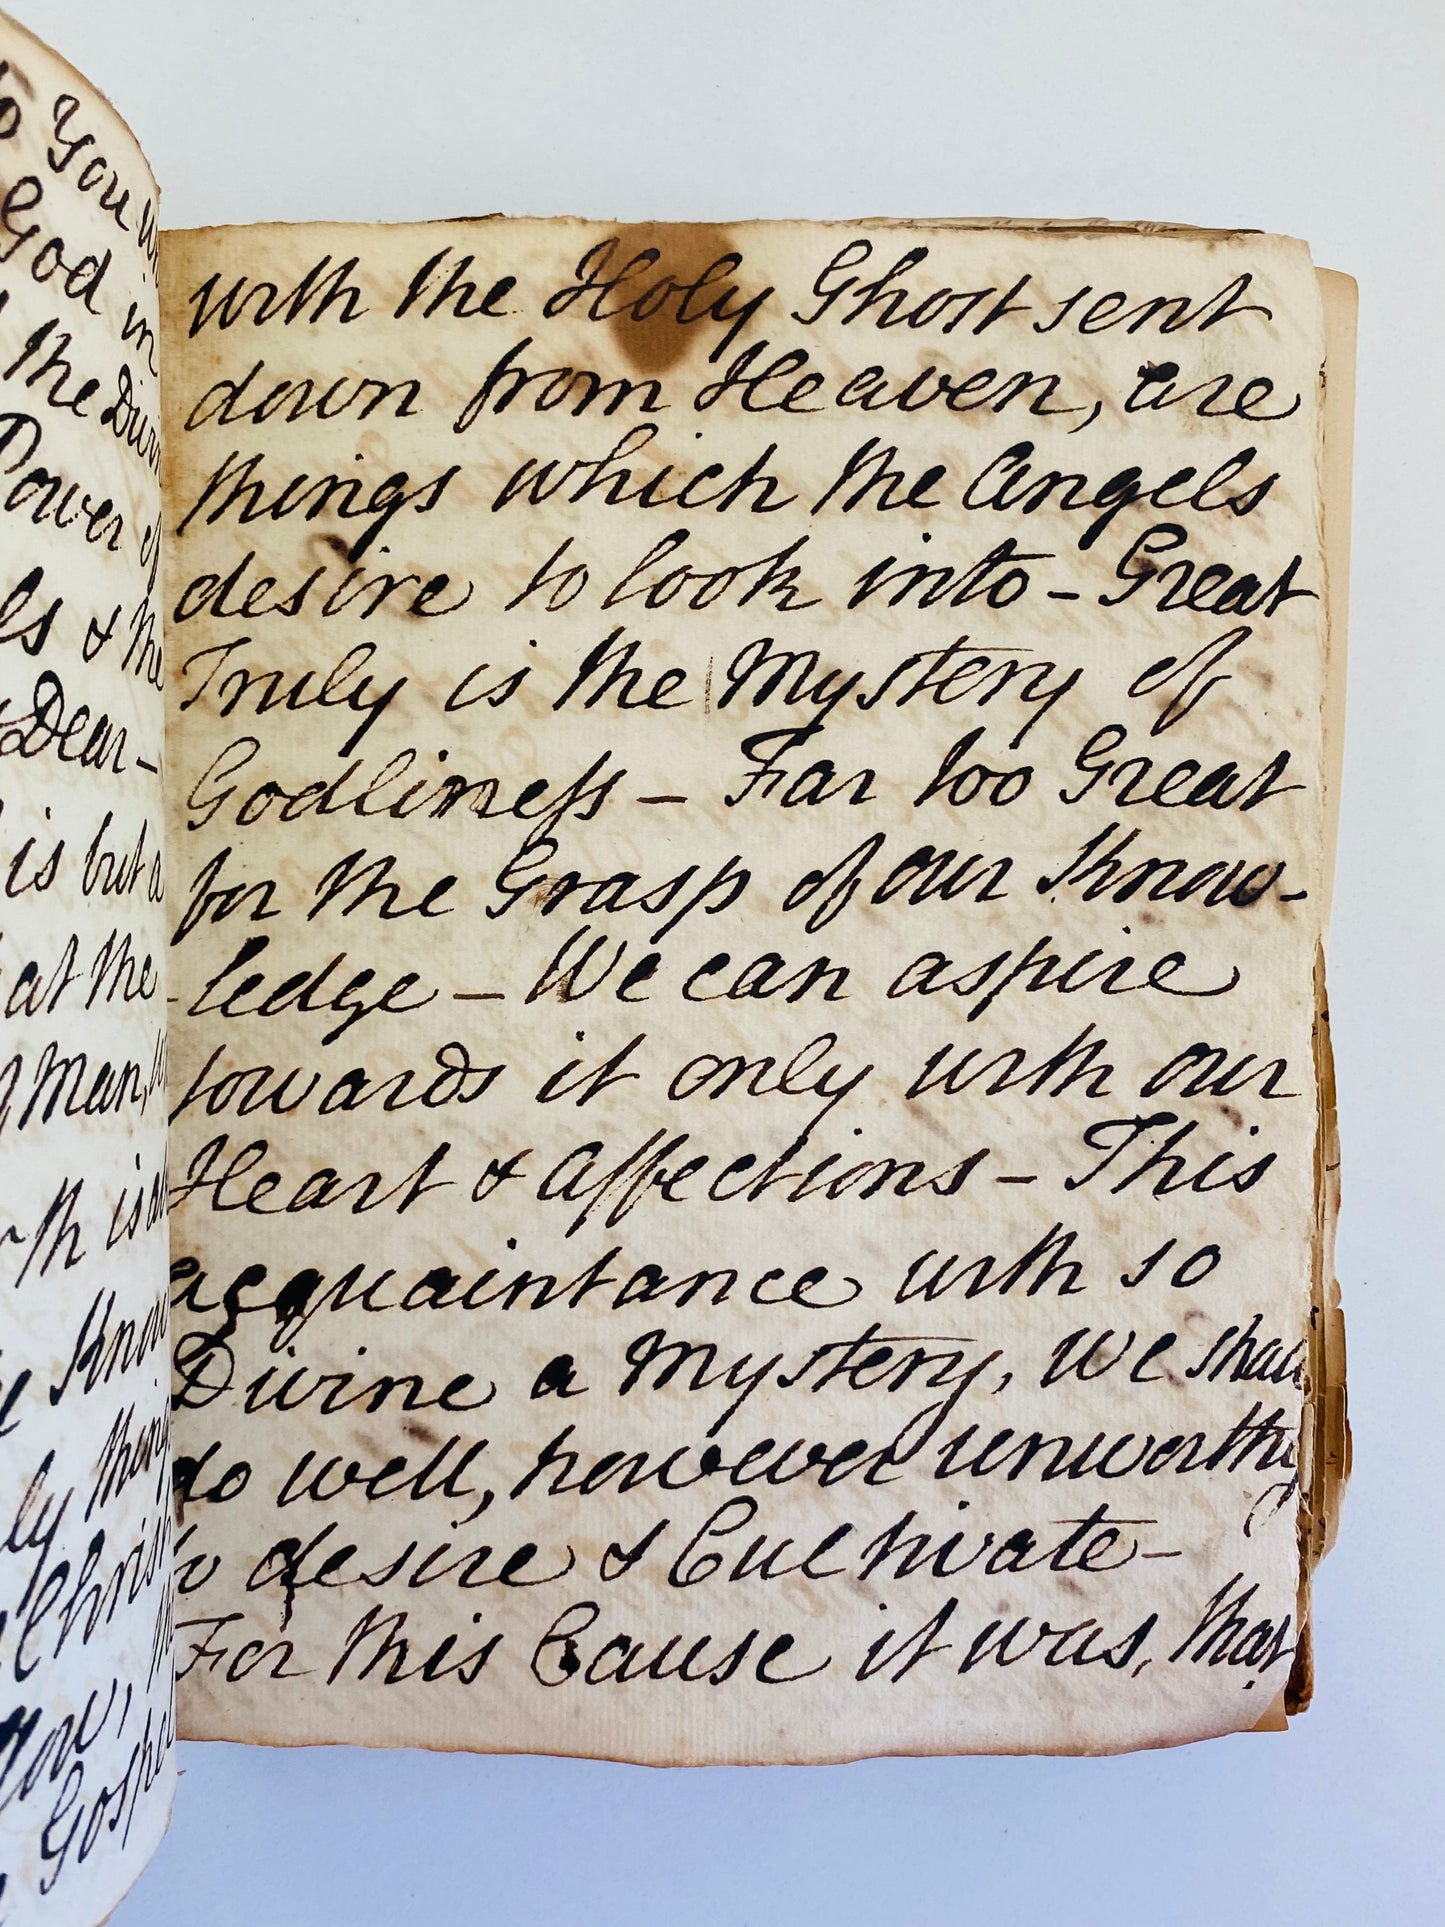 You
God in
the
Power
& the
Dear-
is but a
at the
Man,
is
Know
ly
Christ
Gospel
with the Holy Ghost sent
down from Heaven, are
things which the Angels
desire to look into - Great
Truly is the Mystery of
Godliness - Far too Great
for the Grasp of our Know-
ledge - We can aspire
towards it only with our
Heart & Affections - This
acquaintance with so
Divine a Mystery, we shall
do well, however unworthy
to desire & Cultivate -
For this Cause it was, that